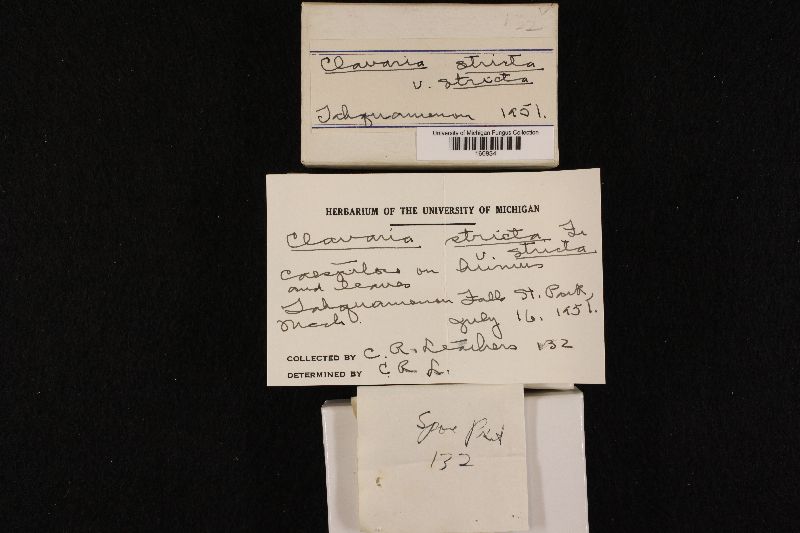 132
Clavaria stricta
v. stricta
Tahquamenon 1951.
University of Michigan Fungus Collection
160934
HERBARIUM OF THE UNIVERSITY OF MICHIGAN
Clavaria stricta Fr.
v. stricta
caespitose on humus
and leaves
Tahquamenon Falls St. Park,
Mich. July 16, 1951.
COLLECTED BY C. R. Leathers 132
DETERMINED BY C R L.
Spore Print
132